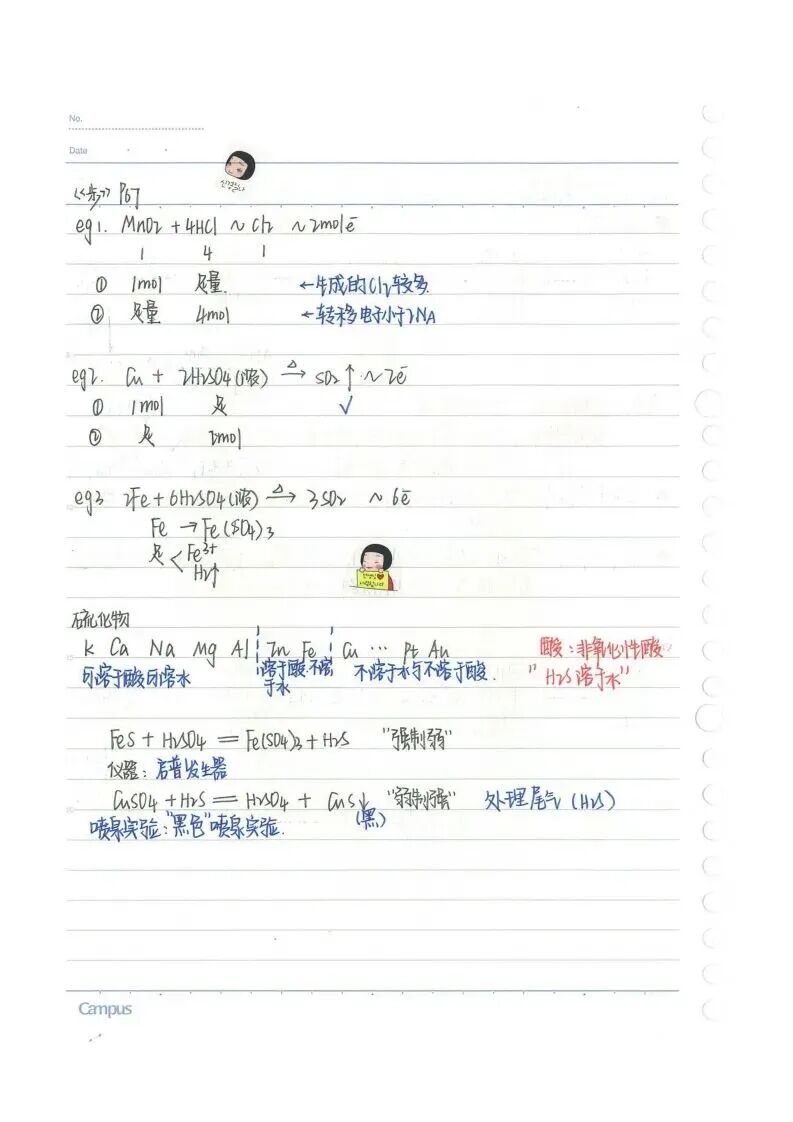 No.
Date
《步》P67
eg1. MnO2 + 4HCl ~ Cl2 ~ 2mole⁻
1 4 1
① 1mol 足量. ←生成的Cl2较多
② 足量 4mol ←转移电子小于2NA
eg2. Cu + 2H2SO4(浓) △→ SO2↑ ~ 2e⁻
① 1mol 足 √
② 足 2mol
eg3 2Fe + 6H2SO4(浓) △→ 3SO2 ~ 6e⁻
Fe → Fe(SO4)3
足 < Fe3+
H2↑
硫化物
K Ca Na Mg Al Zn Fe Cu … Pt Au 酸:非氧化性酸
可溶于酸可溶水 溶于酸.不溶于水 不溶于水与不溶于酸. "H2S溶于水"
FeS + H2SO4 = Fe(SO4)3 + H2S "强制弱"
仪器:启普发生器
CuSO4 + H2S = H2SO4 + CuS↓ "弱制强" 处理尾气(H2S)
(黑)
喷泉实验:"黑色"喷泉实验.
Campus